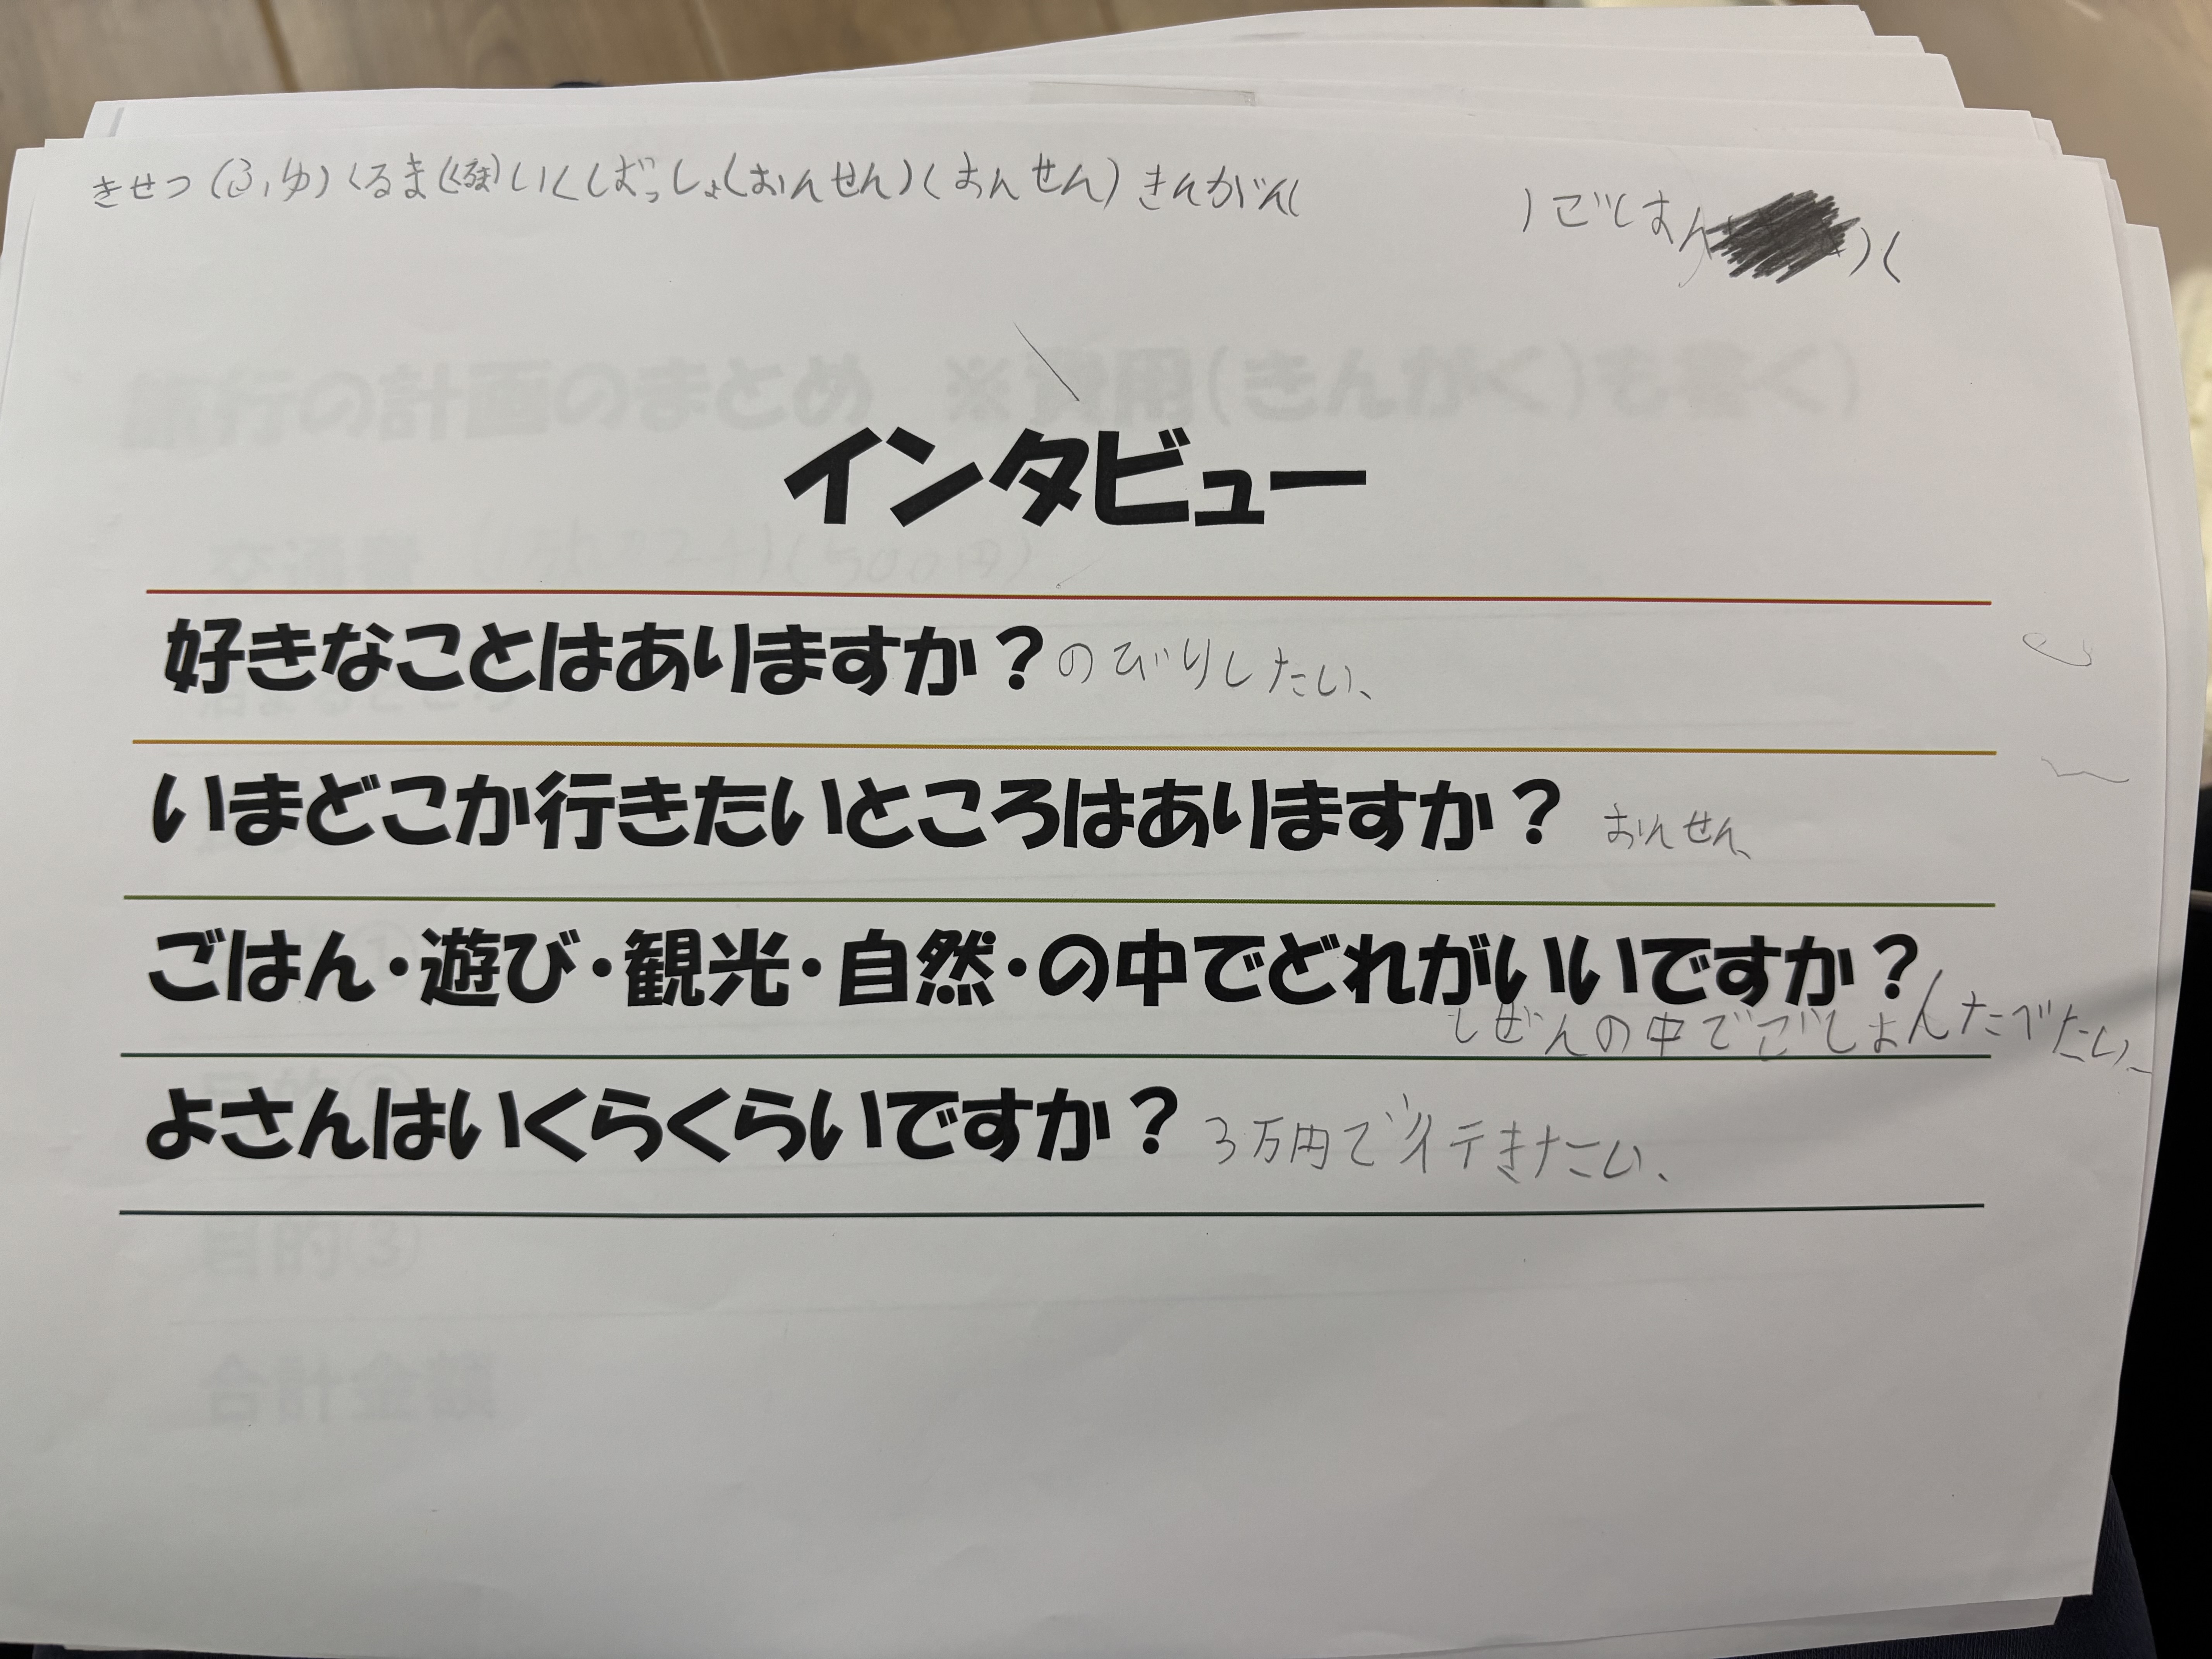 きせつ(ふゆ)くるま(くるま)いくしばっしょ(おんせん)(おんせん)きんがん(　　　)ごはん　)(
インタビュー
好きなことはありますか？のびりしたい、
いまどこか行きたいところはありますか？おんせん、
ごはん・遊び・観光・自然・の中でどれがいいですか？
しぜんの中でごはんたべたい、
よさんはいくらくらいですか？3万円で行きたい、
旅行の計画のまとめ　※費用(きんがく)も書く)
交通費
泊まるところ
目的②
目的③
合計金額